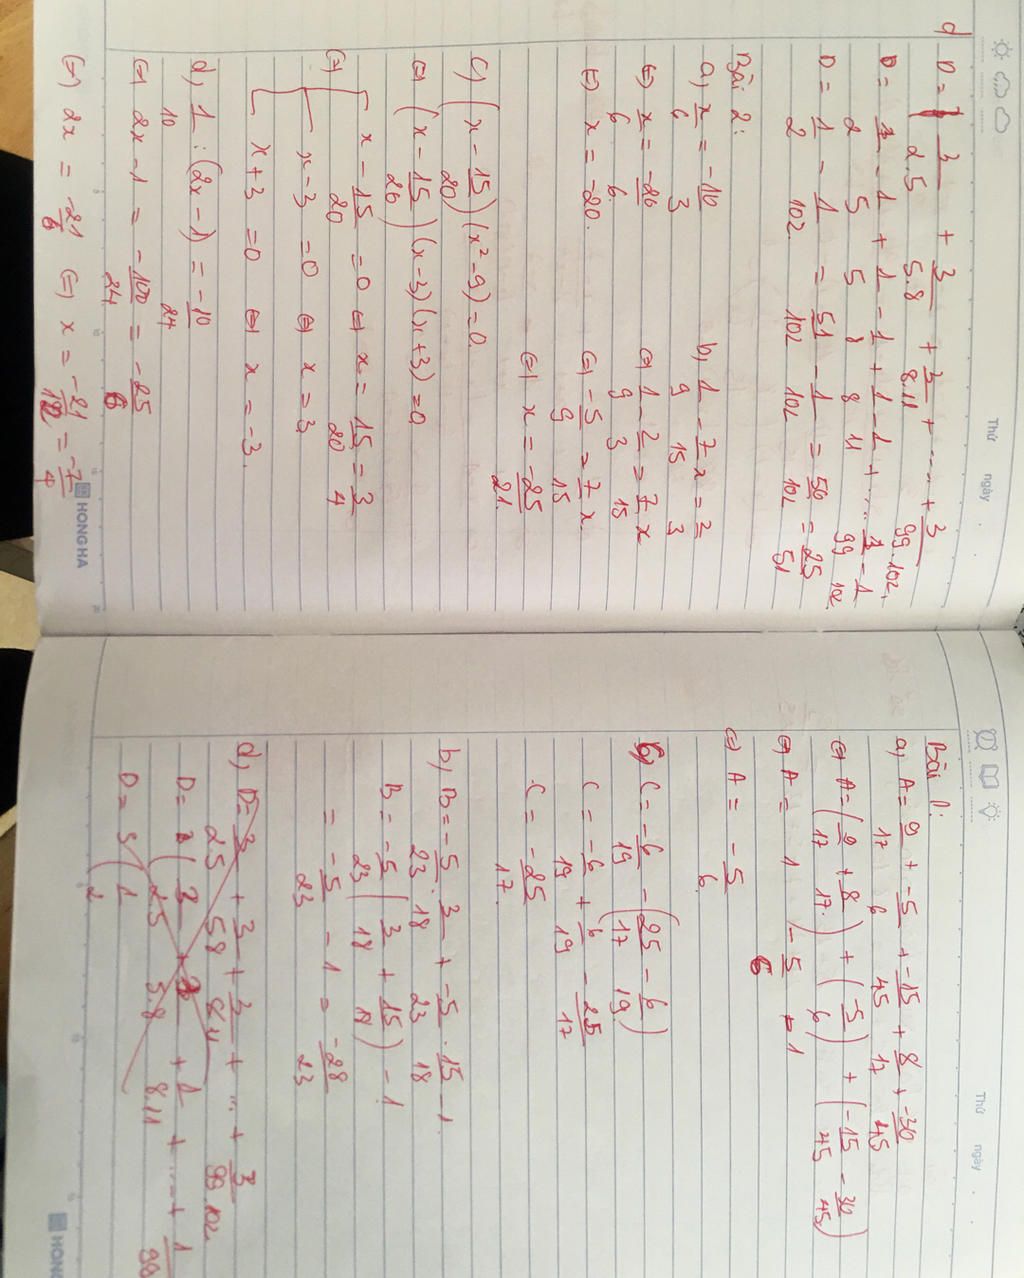 Thứ ngày
d D = 3/2.5 + 3/5.8 + 3/8.11 + .... + 3/99.102
D = 1/2 - 1/5 + 1/5 - 1/8 + 1/8 - 1/11 + ... 1/99 - 1/102
D = 1/2 - 1/102 = 51/102 - 1/102 = 50/102 = 25/51
Bài 2:
a, x/6 = -10/3
⇔ x/6 = -20/6
⇔ x = -20.
b, 1/9 - 7/15 x = 2/3
⇔ 1/9 - 2/3 = 7/15 x
⇔ -5/9 = 7/15 x.
⇔ x = -25/21.
c, (x - 15/20)(x² - 9) = 0
⇔ (x - 15/20)(x - 3)(x + 3) = 0
⇔ x - 15/20 = 0 ⇔ x = 15/20 = 3/4
x - 3 = 0 ⇔ x = 3
x + 3 = 0 ⇔ x = -3.
d, 1/10 : (2x - 1) = -10/24
⇔ 2x - 1 = -100/24 = -25/6
⇔ 2x = -21/6 ⇔ x = -21/12 = -7/4
HONG HA
Thứ ngày
Bài 1:
a, A = 9/17 + -5/6 + -15/45 + 8/17 + -30/45
⇔ A = (9/17 + 8/17) + (-5/6) + (-15/45 - 30/45)
⇔ A = 1 - 5/6 - 1
⇔ A = -5/6
c, C = -6/19 - (25/17 - 6/19)
C = -6/19 + 6/19 - 25/17
C = -25/17.
b, B = -5/23 . 3/18 + -5/23 . 15/18 - 1.
B = -5/23 (3/18 + 15/18) - 1
= -5/23 - 1 = -28/23
d, D = 3/2.5 + 3/5.8 + 3/8.11 + ... + 3/99.102
HONG